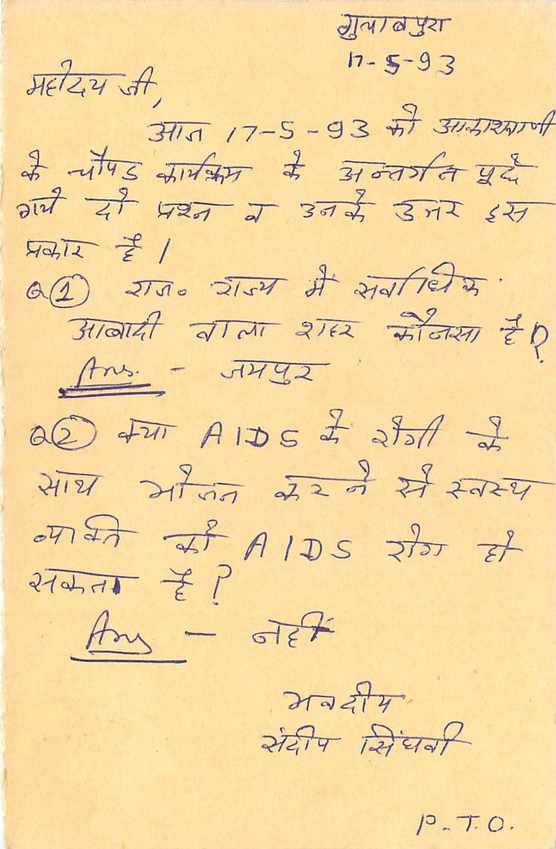 गुलाबपुरा
17-5-93
महोदय जी,
आज 17-5-93 को आकाशवाणी
के चौपड कार्यक्रम के अन्तर्गत पूछे
गये दो प्रश्न व उनके उत्तर इस
प्रकार है।
Q① राज० राज्य में सर्वाधिक
आबादी वाला शहर कौनसा है?
Ans. - जयपुर
Q② क्या AIDS के रोगी के
साथ भोजन करने से स्वस्थ
व्यक्ति को AIDS रोग हो
सकता है?
Ans - नहीं
भवदीय
संदीप सिंघवी
P.T.O.